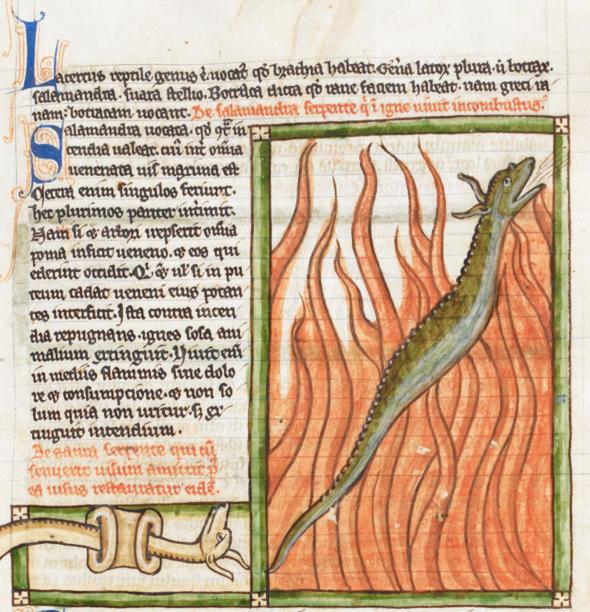 Lacertus reptile genus ē. uocat' qđ brachia habeat. Gen̄a lac̄toꝝ plura. ū botrax.
salamandra. suara stellio. Botraca dicta qđ rane faciem habeat. nam greci ra
nam: botracam uocant. De salamandra serpente q̇ ı̄ igne uiuit incombustus.
Salamandra uocata. qđ ɔͣ in
cendia ualeat. cuı̄ int̄ om̄ia
uenenata uis maxima est
Cetera enim singulos feriunt.
hec plurimos pariter int̄imit.
Nam si & arbori irepserit om̄ia
poma inficit ueneno. & eos qui
ederint occidit. & ul' si in pu
teum cadat ueneni eius potan
tes interficit. Ista contra incen
dia repugnans. ignes sola ani
malium extinguit. Uiuit eni
in mediis flammis sine dolo
re & consumptione. & non so
lum quia non uritur. s; ex
tinguit incendium.
De saura serpente qui cū
senuerit uisum amittit &
ea uisus restauratur eidē.